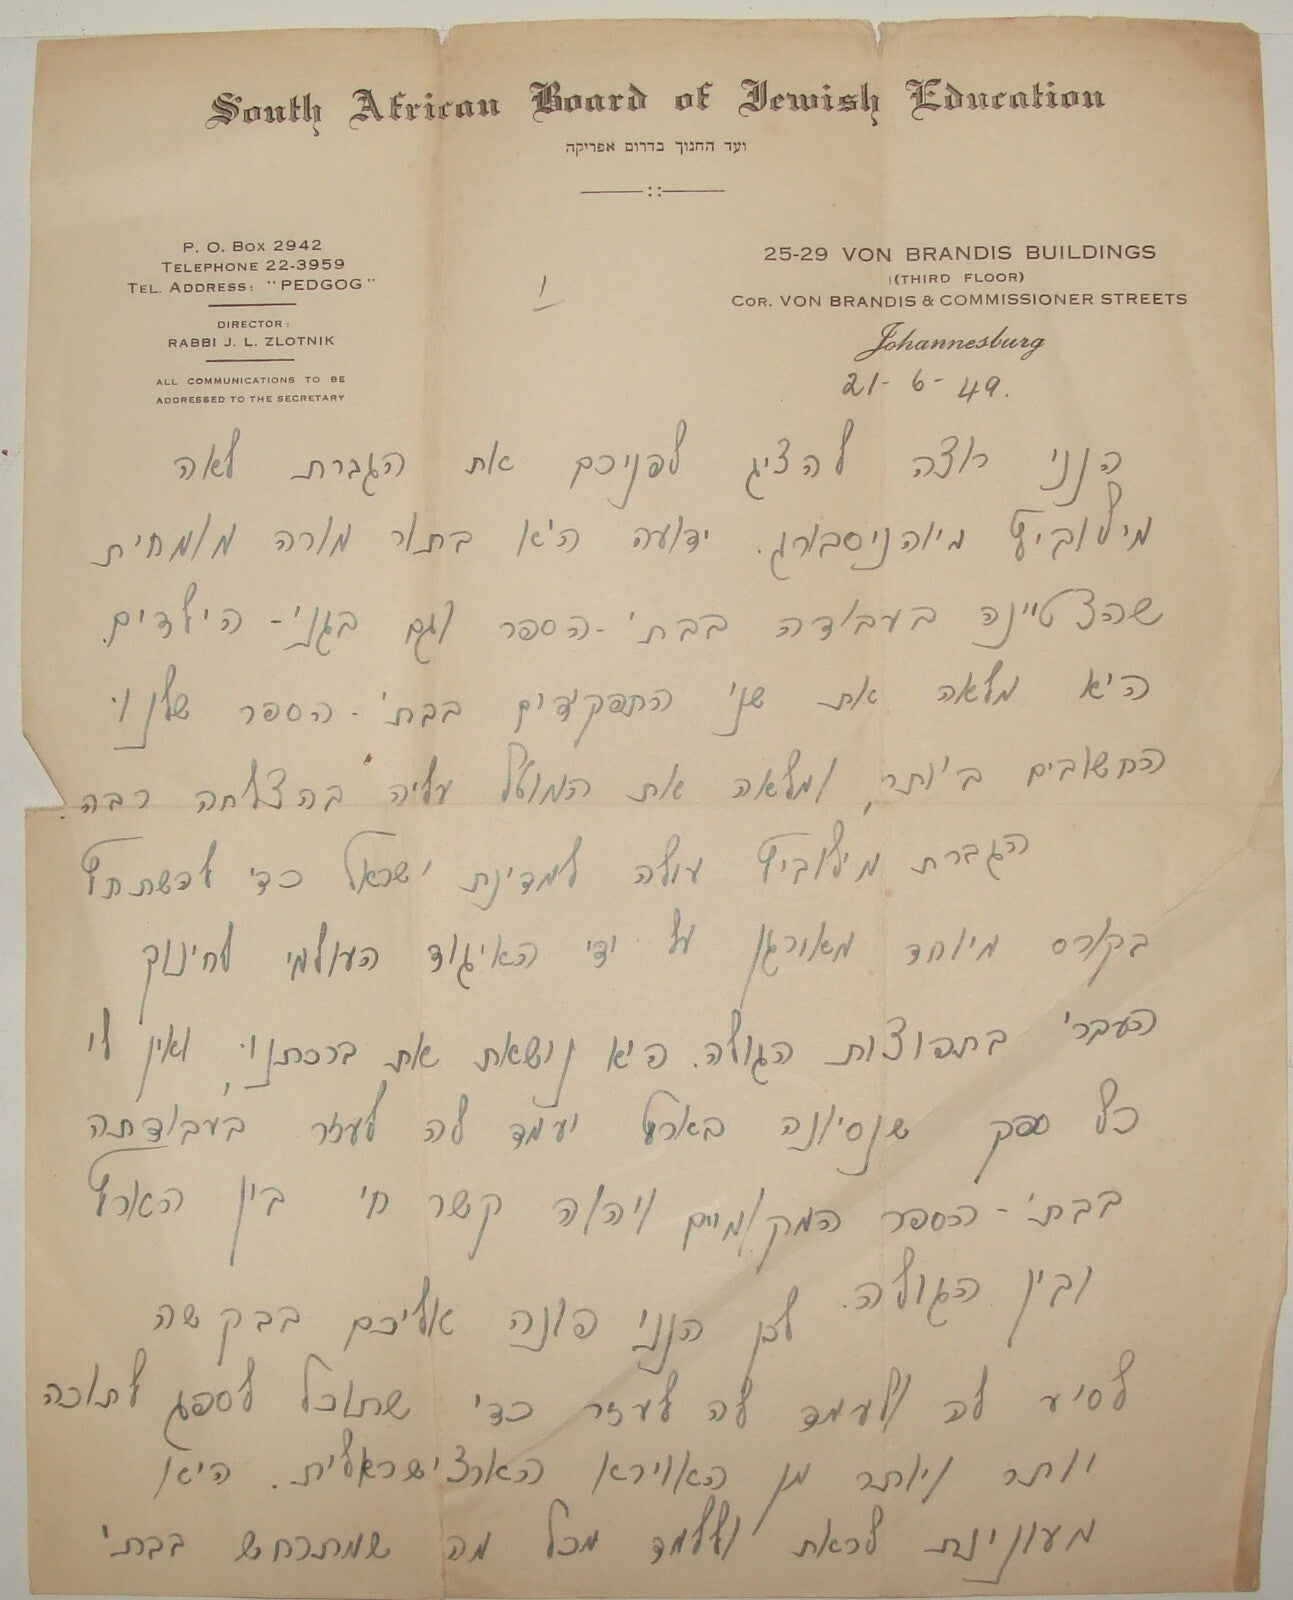 South African Board of Jewish Education
ועד החנוך בדרום אפריקה
P. O. Box 2942
TELEPHONE 22-3959
TEL. ADDRESS: "PEDGOG"
DIRECTOR:
RABBI J. L. ZLOTNIK
ALL COMMUNICATIONS TO BE
ADDRESSED TO THE SECRETARY
1
25-29 VON BRANDIS BUILDINGS
(THIRD FLOOR)
COR. VON BRANDIS & COMMISSIONER STREETS
Johannesburg
21-6-49.
הנני רוצה להציג לפניכם את הגברת לאה
מילוביץ מיוהניסבורג. ידועה היא בתור מורה מומחית
שהצטיינה בעבודה בבתי-הספר וגם בגני-הילדים.
היא מלאה את שני התפקידים בבתי-הספר שלנו
החשובים ביותר, ומלאה את המוטל עליה בהצלחה רבה.
הגברת מילוביץ עולה למדינת ישראל כדי להשתתף
בקורס מיוחד מאורגן על ידי האיגוד העולמי לחינוך
העברי בתפוצות הגולה. היא נושאת את ברכתנו, ואין לי
כל ספק שנסיונה בארץ יעמד לה לעזר בעבודתה
בבתי-הספר המקומיים ויהוה קשר חי בין הארץ
ובין הגולה. לכן הנני פונה אליכם בבקשה
לסיע לה ולעמד לה לעזר כדי שתוכל לספג לתוכה
יותר ויותר מן האוירא הארצישראלית. היא
מעונינת לראת וללמד מכל מה שמתרחש בבתי